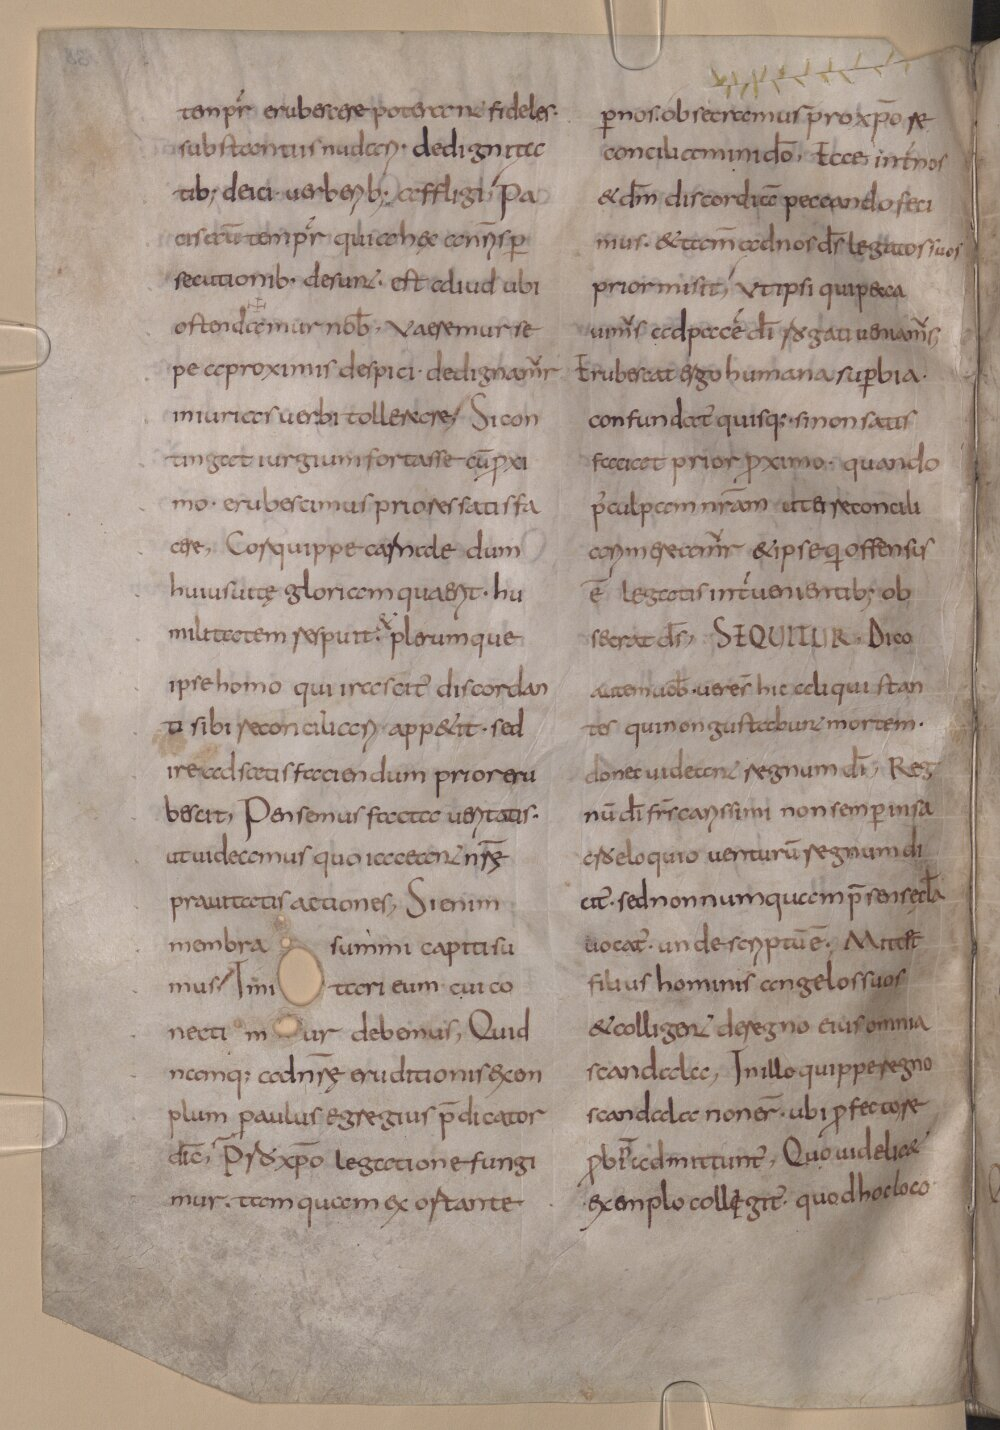 tempr̄ erubescere poterant fideles·
substantiis nudari· dedignita
tib; deici· uerberib; affligi, Pa
cis aut̄ tempr̄ quia hęc a nr̄is p̄
secutionib· desunt· est aliud ubi
ostendamur nob̄, Veremur se
pe a proximis despici· dedignamr̄
iniurias uerbi tollerare, Si con
tingat iurgium fortasse cū p̄xi
mo· erubescimus priores satisfa
cere, Cor quippe carnale dum
huius uitę gloriam quaerit· hu
militatem respuit· & plerumque
ipse homo qui irascit̄ discordan
ti sibi reconciliari appetit· sed
ire ad satisfaciendum prior eru
bescit, Pensemus facta ueritatis·
ut uideamus quo iaceant nr̄ę
prauitatis actiones, Si enim
membra summi capitis su
mus, Imi tari eum cui co
necti m ur debemus, Quid
namq; ad nr̄ę eruditionis exem
plum paulus egregius p̄dicator
dic̄, Pro xp̄o legatione fungi
mur· tam quam exortante
p̄ nos· obsecramus pro xp̄o re
conciliamini dō, Ecce int̄ nos
& dm̄ discordiā peccando feci
mus· & tam̄ ad nos ds̄ legatos suos
prior misit, Vt ipsi qui pecca
uimus ad pacē dī rogati ueniamus,
Erubescat ergo humana superbia·
confundat̄ quisq;· si non satis
faciat prior p̄ximo· quando
p̄ culpam nr̄am ut ei reconcili
ari mereamr̄ & ipse qi offensus
ē legatis int̄uenientib; ob
secrat ds̄, SEQUITUR, Dico
autem uob̄· uere s̄ hic aliqui stan
tes qui non gustabunt mortem·
donec uideant regnum dī, Reg
nū dī fr̄s carissimi non semper in sa
cro eloquio venturū regnum di
cit̄· sed nonnumquam p̄sens ęcl̄a
uocat̄· unde scriptū ē· Mittet
filius hominis angelos suos
& colligent de regno eius omnia
scandala, In illo quippe regno
scandala non er̄· ubi p̄fecto re
p̄bi n̄ admittunt̄, Quo uidelicet
exemplo collegit̄· quod hoc loco